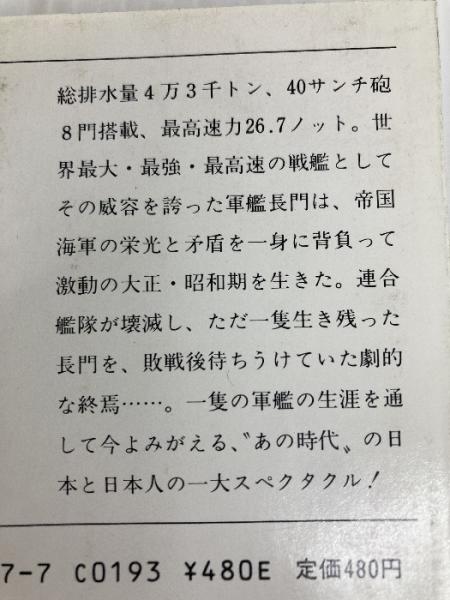 総排水量4万3千トン、40サンチ砲
8門搭載、最高速力26.7ノット。世
界最大・最強・最高速の戦艦として
その威容を誇った軍艦長門は、帝国
海軍の栄光と矛盾を一身に背負って
激動の大正・昭和期を生きた。連合
艦隊が壊滅し、ただ一隻生き残った
長門を、敗戦後待ちうけていた劇的
な終焉……。一隻の軍艦の生涯を通
して今よみがえる、〝あの時代〟の日
本と日本人の一大スペクタクル!
7-7 C0193 ¥480E 定価480円